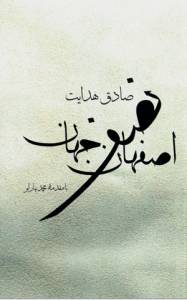 صادق هدایت
اصفهان نصف جهان
با مقدمه محمد بهارلو